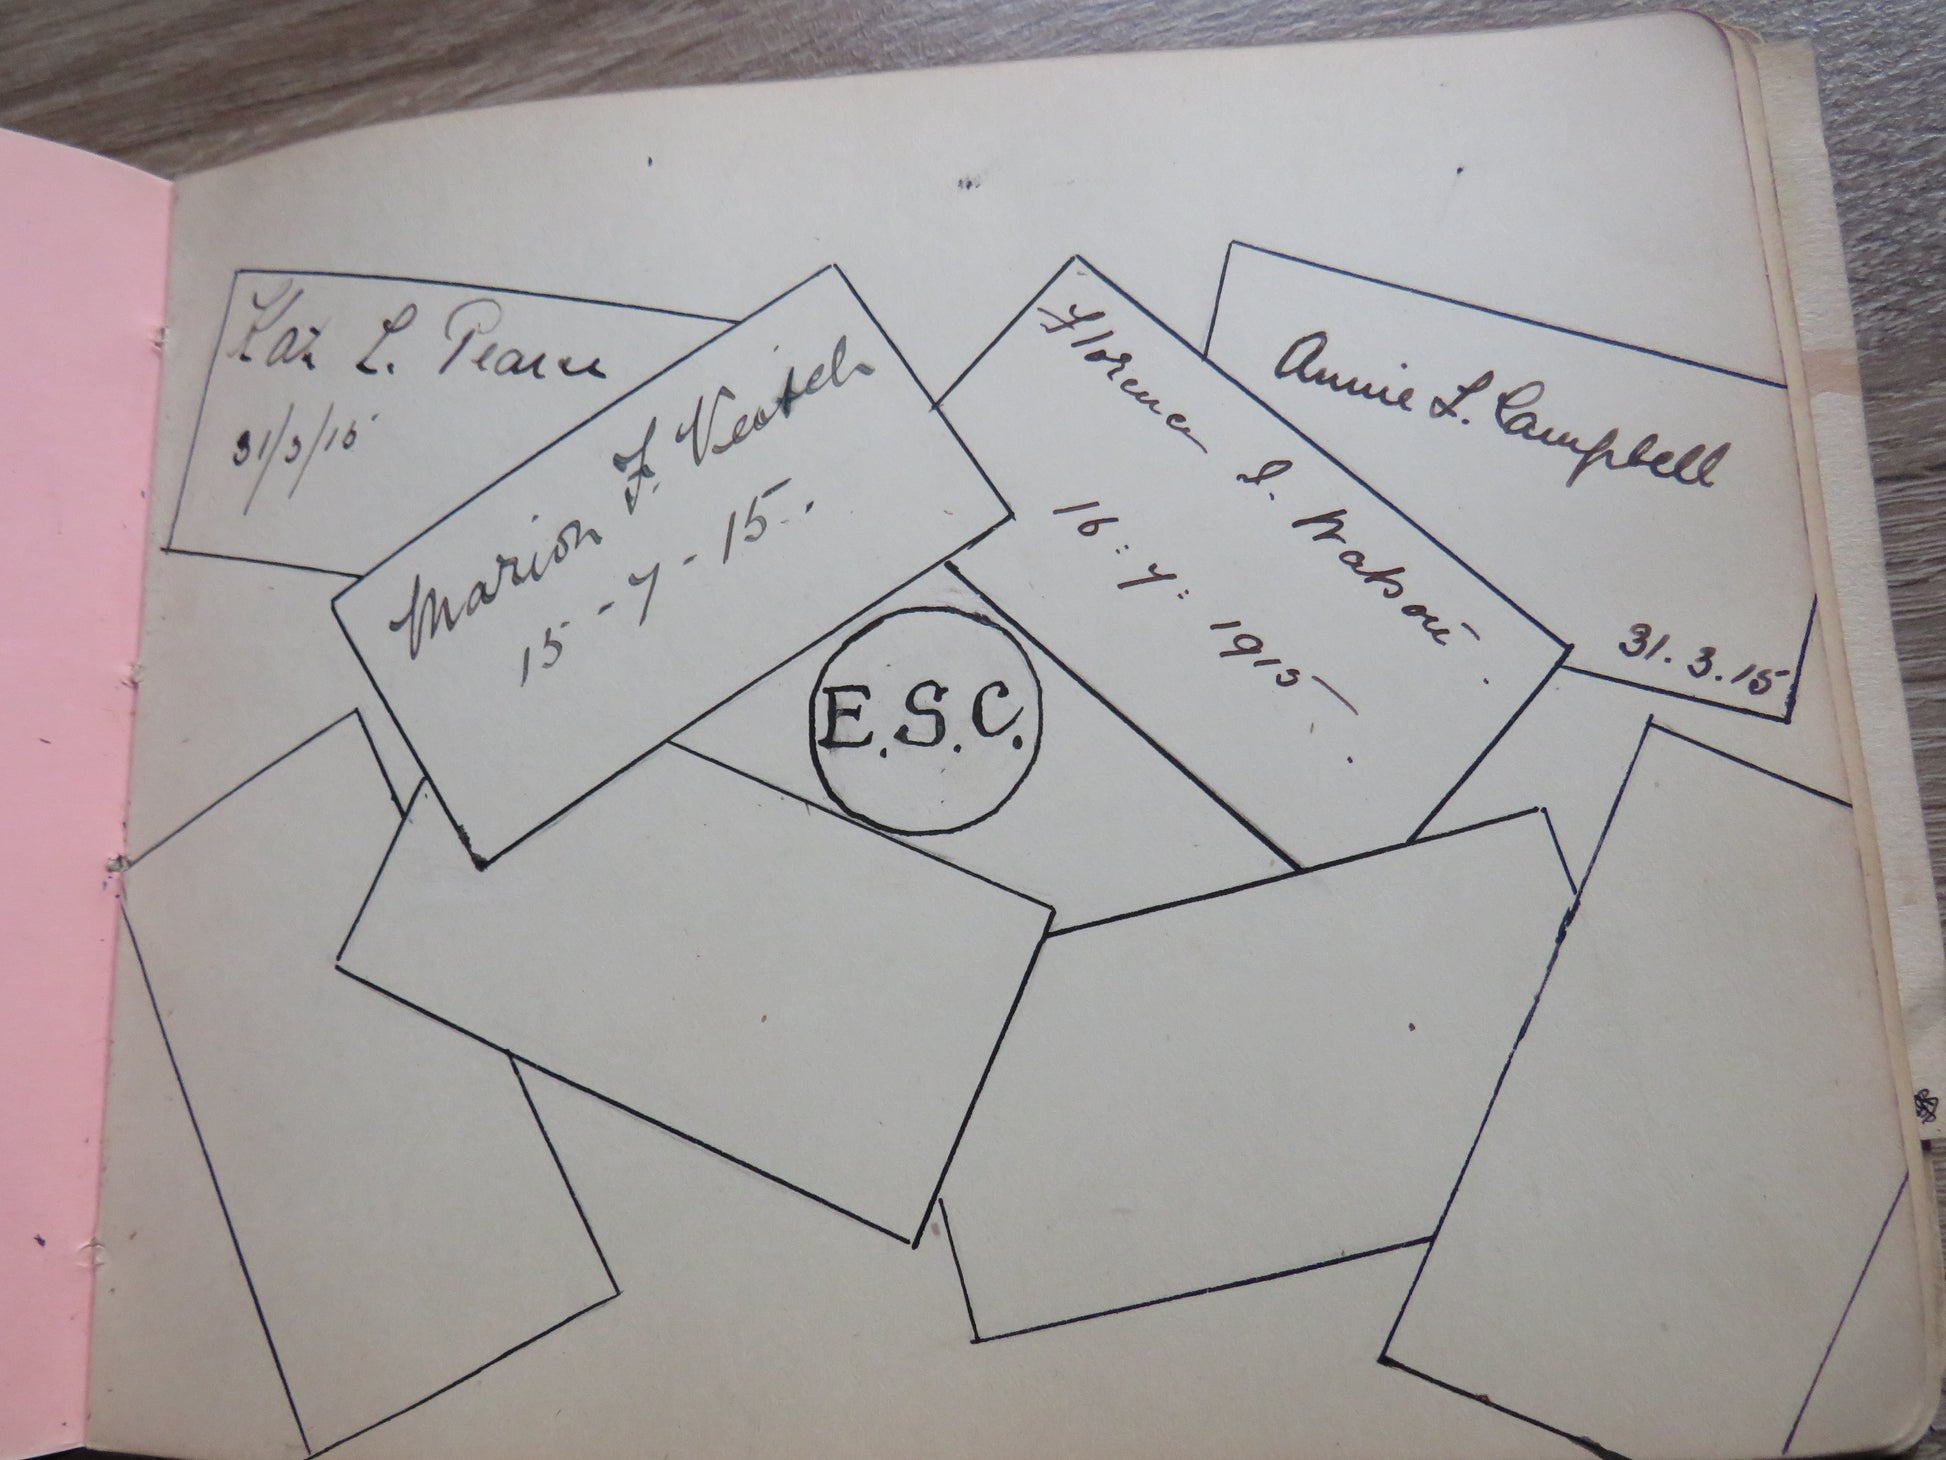 Kat L. Pearce
31/3/15
Marion F. Veitch
15-7-15.
Florence I. Watson.
16:7:1915.
Annie L. Campbell
31.3.15
E.S.C.